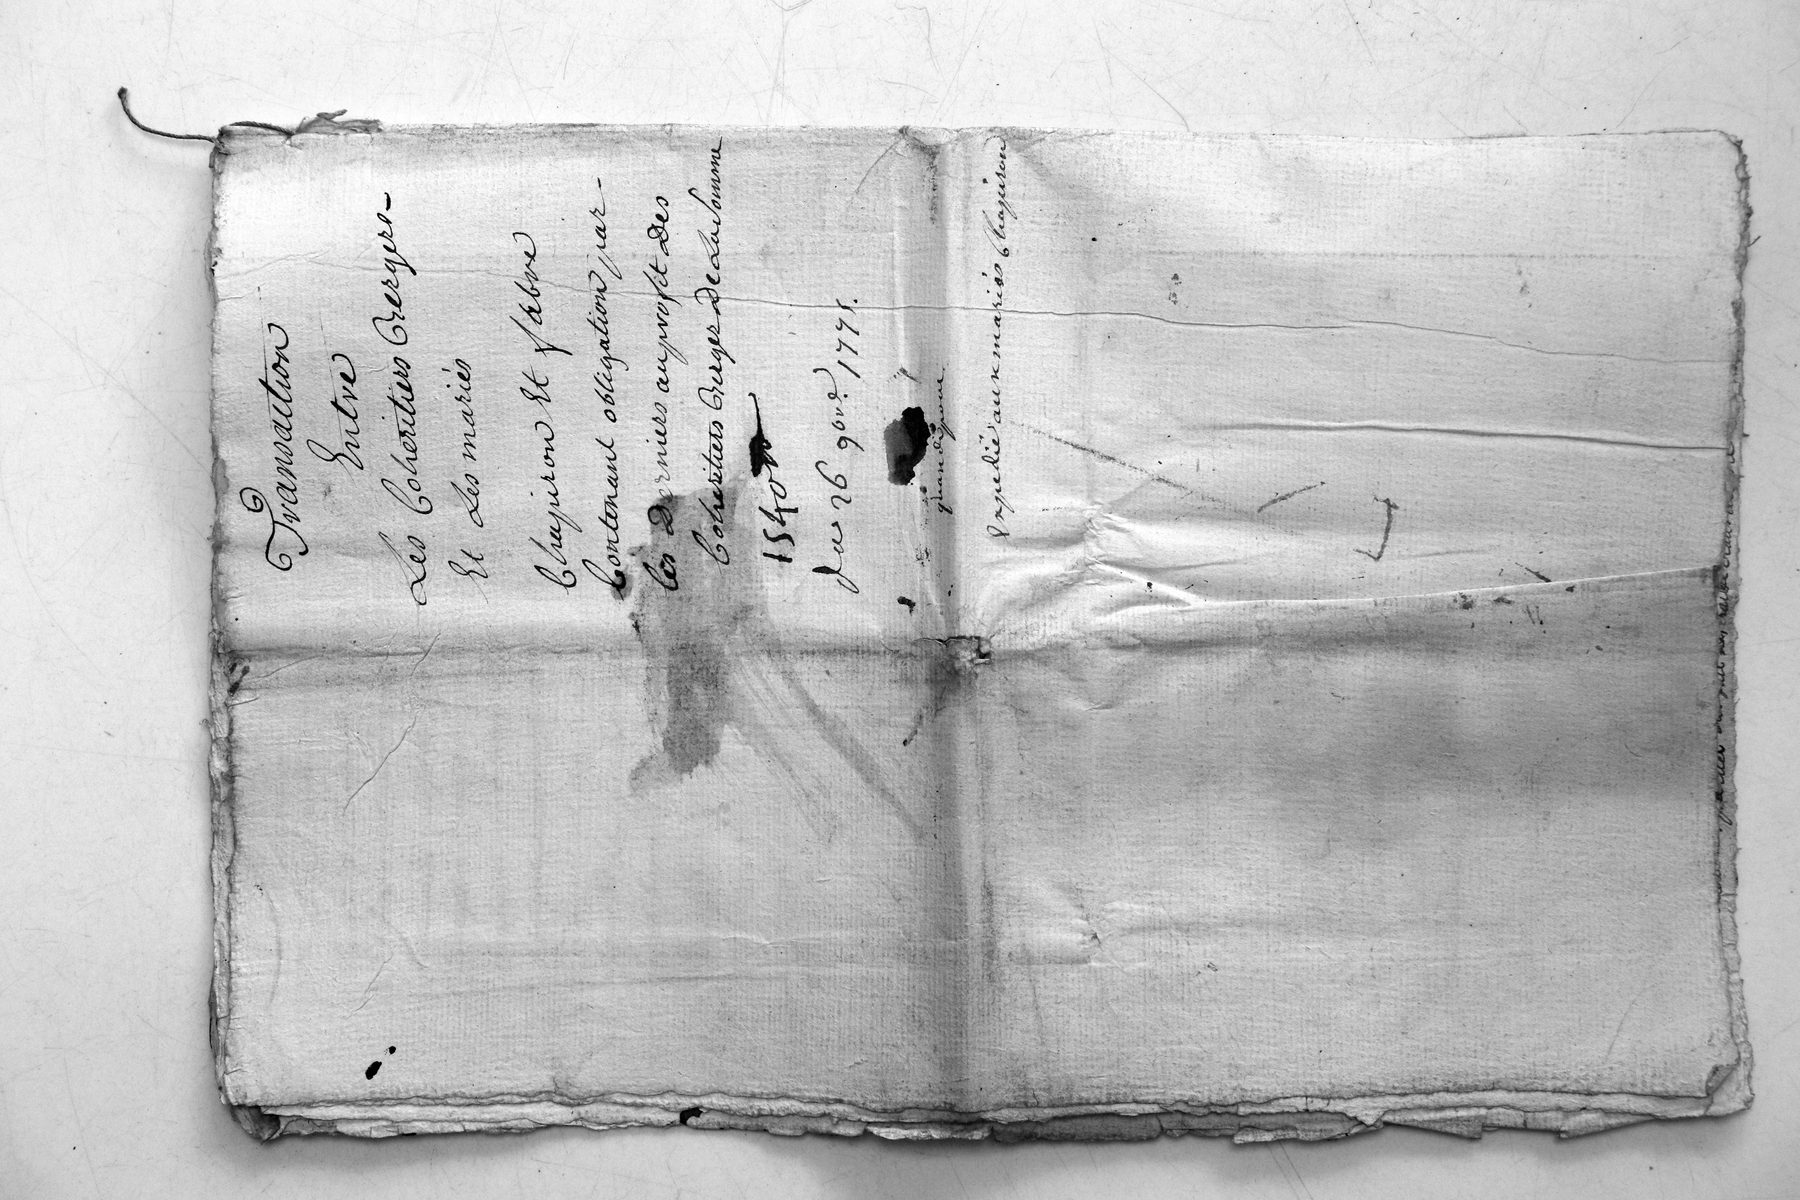 Transaction
Entre
Les Coheritiers Bergers-
Et Les mariés
Chapiron Et fabre
Contenant obligation par-
les Derniers au profit Des
Coheritiers Berger De La Somme
1540
Du 26 9bre 1775.
Expedié aux mariés Chapiron